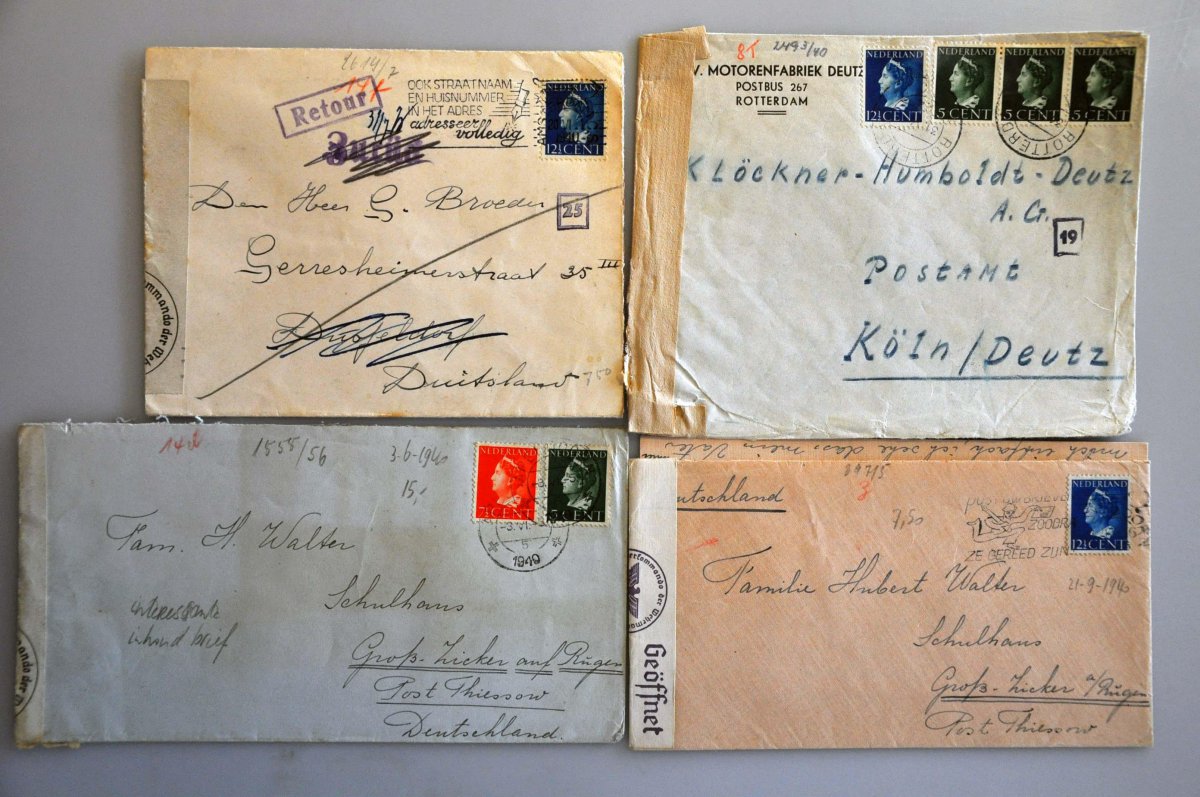 2614/2
14
Retour
Zurück
OOK STRAATNAAM
EN HUISNUMMER
IN HET ADRES
adresseer
volledig
NEDERLAND
12½ CENT
Den Heer G. Broeder
25
Gerresheimerstraat 35 III
Düsseldorf
Duitsland
750
mmando der We
8T
2493/40
V. MOTORENFABRIEK DEUTZ
POSTBUS 267
ROTTERDAM
NEDERLAND
12½ CENT
NEDERLAND
5 CENT
NEDERLAND
5 CENT
NEDERLAND
5 CENT
ROTTERD
Klöckner-Humboldt-Deutz
A.G.
19
Postamt
Köln/Deutz
14d
1558/56
3-6-1940
15,-
NEDERLAND
7½ CENT
NEDERLAND
5 CENT
-3.VI.
1940
Fam. H. Walter
Schulhaus
interessante
inhoud brief
Groß-Zicker auf Rügen
Post Thiessow
Deutschland.
mando der
noch einfach ich sehe dass mein Vater
eutschland
897/5
3
7,50
NEDERLAND
12½ CENT
ZE GEREED ZIJN
21-9-1940
Familie Hubert Walter
Schulhaus
Groß-Zicker a/Rügen
Post Thiessow
erkommando der Wehrma
Geöffnet